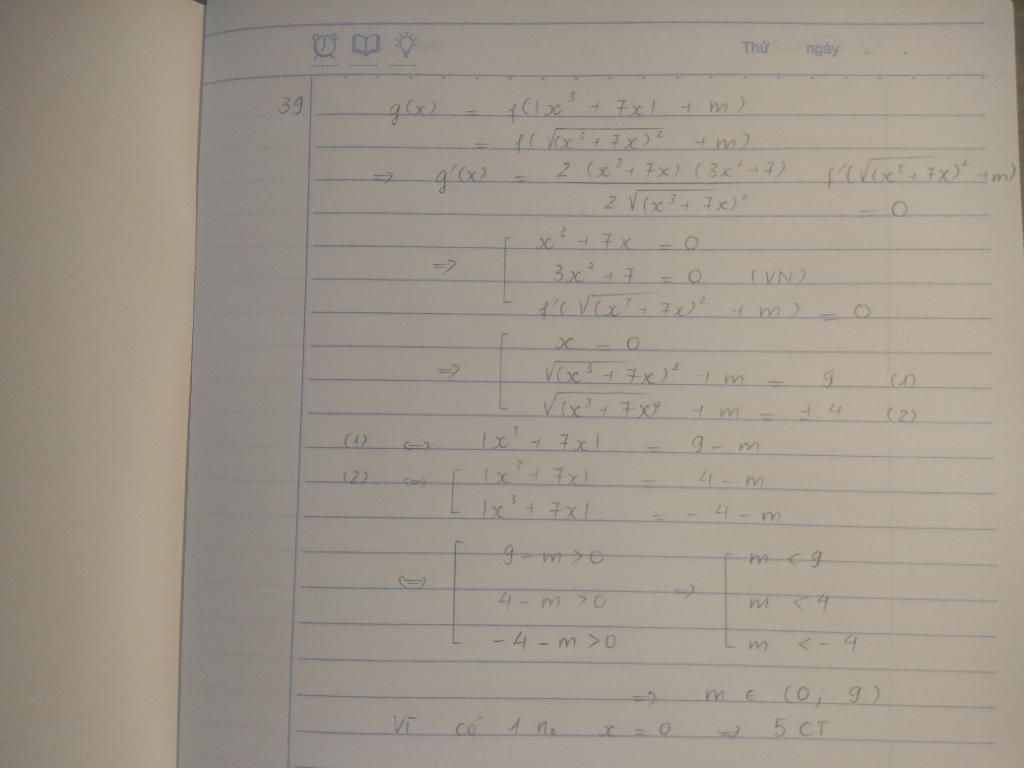 Thứ ngày
39. g(x) = f(|x³ + 7x| + m)
= f(√(x³ + 7x)² + m)
⇒ g'(x) = 2.(x³+7x).(3x²+7) / 2√(x³+7x)² . f'(√(x³+7x)² + m) = 0
⇒ [ x³ + 7x = 0
3x² + 7 = 0 (VN)
f'(√(x³ + 7x)² + m) = 0
⇒ [ x = 0
√(x³ + 7x)² + m = 9 (1)
√(x³ + 7x)² + m = ±4 (2)
(1) ⇔ |x³ + 7x| = 9 - m
(2) ⇔ [ |x³ + 7x| = 4 - m
|x³ + 7x| = -4 - m
⇔ [ 9 - m > 0 ⇒ [ m < 9
4 - m > 0 m < 4
-4 - m > 0 m < -4
⇒ m ∈ (0; 9)
Vì có 1 n₀ x = 0 ⇒ 5 CT